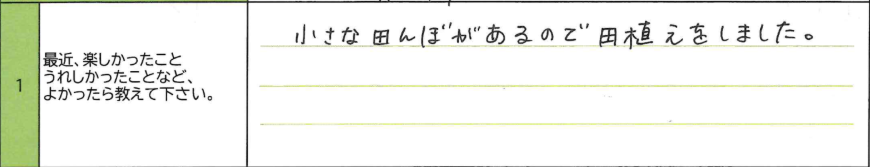 1
最近、楽しかったこと
うれしかったことなど、
よかったら教えて下さい。
小さな田んぼがあるので田植えをしました。